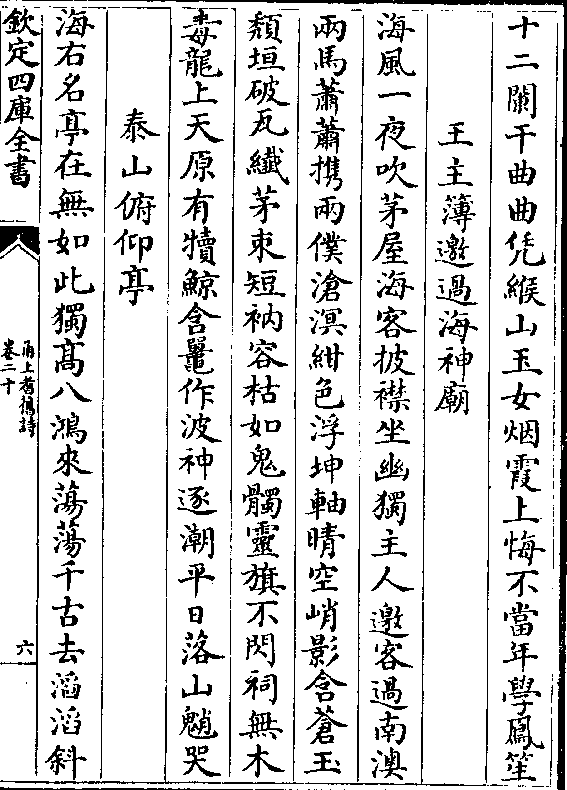 十二闌干曲曲凭緱山玉女烟霞上悔不當年學鳳笙
王主簿邀過海神廟
海風一夜吹茅屋海客披襟坐幽獨主人邀客過南澳
兩馬蕭蕭携兩僕滄溟紺色浮坤軸晴空峭影含蒼玉
頽垣破瓦纎茅束短衲容枯如鬼髑靈旗不閃祠無木
毒龍上天原有犢鯨含鼉作波神逐潮平日落山魈哭
泰山俯仰亭
海右名亭在無如此獨髙八鴻來蕩蕩千古去滔滔斜
欽定四庫全書
甬上耆舊詩
卷二十
六